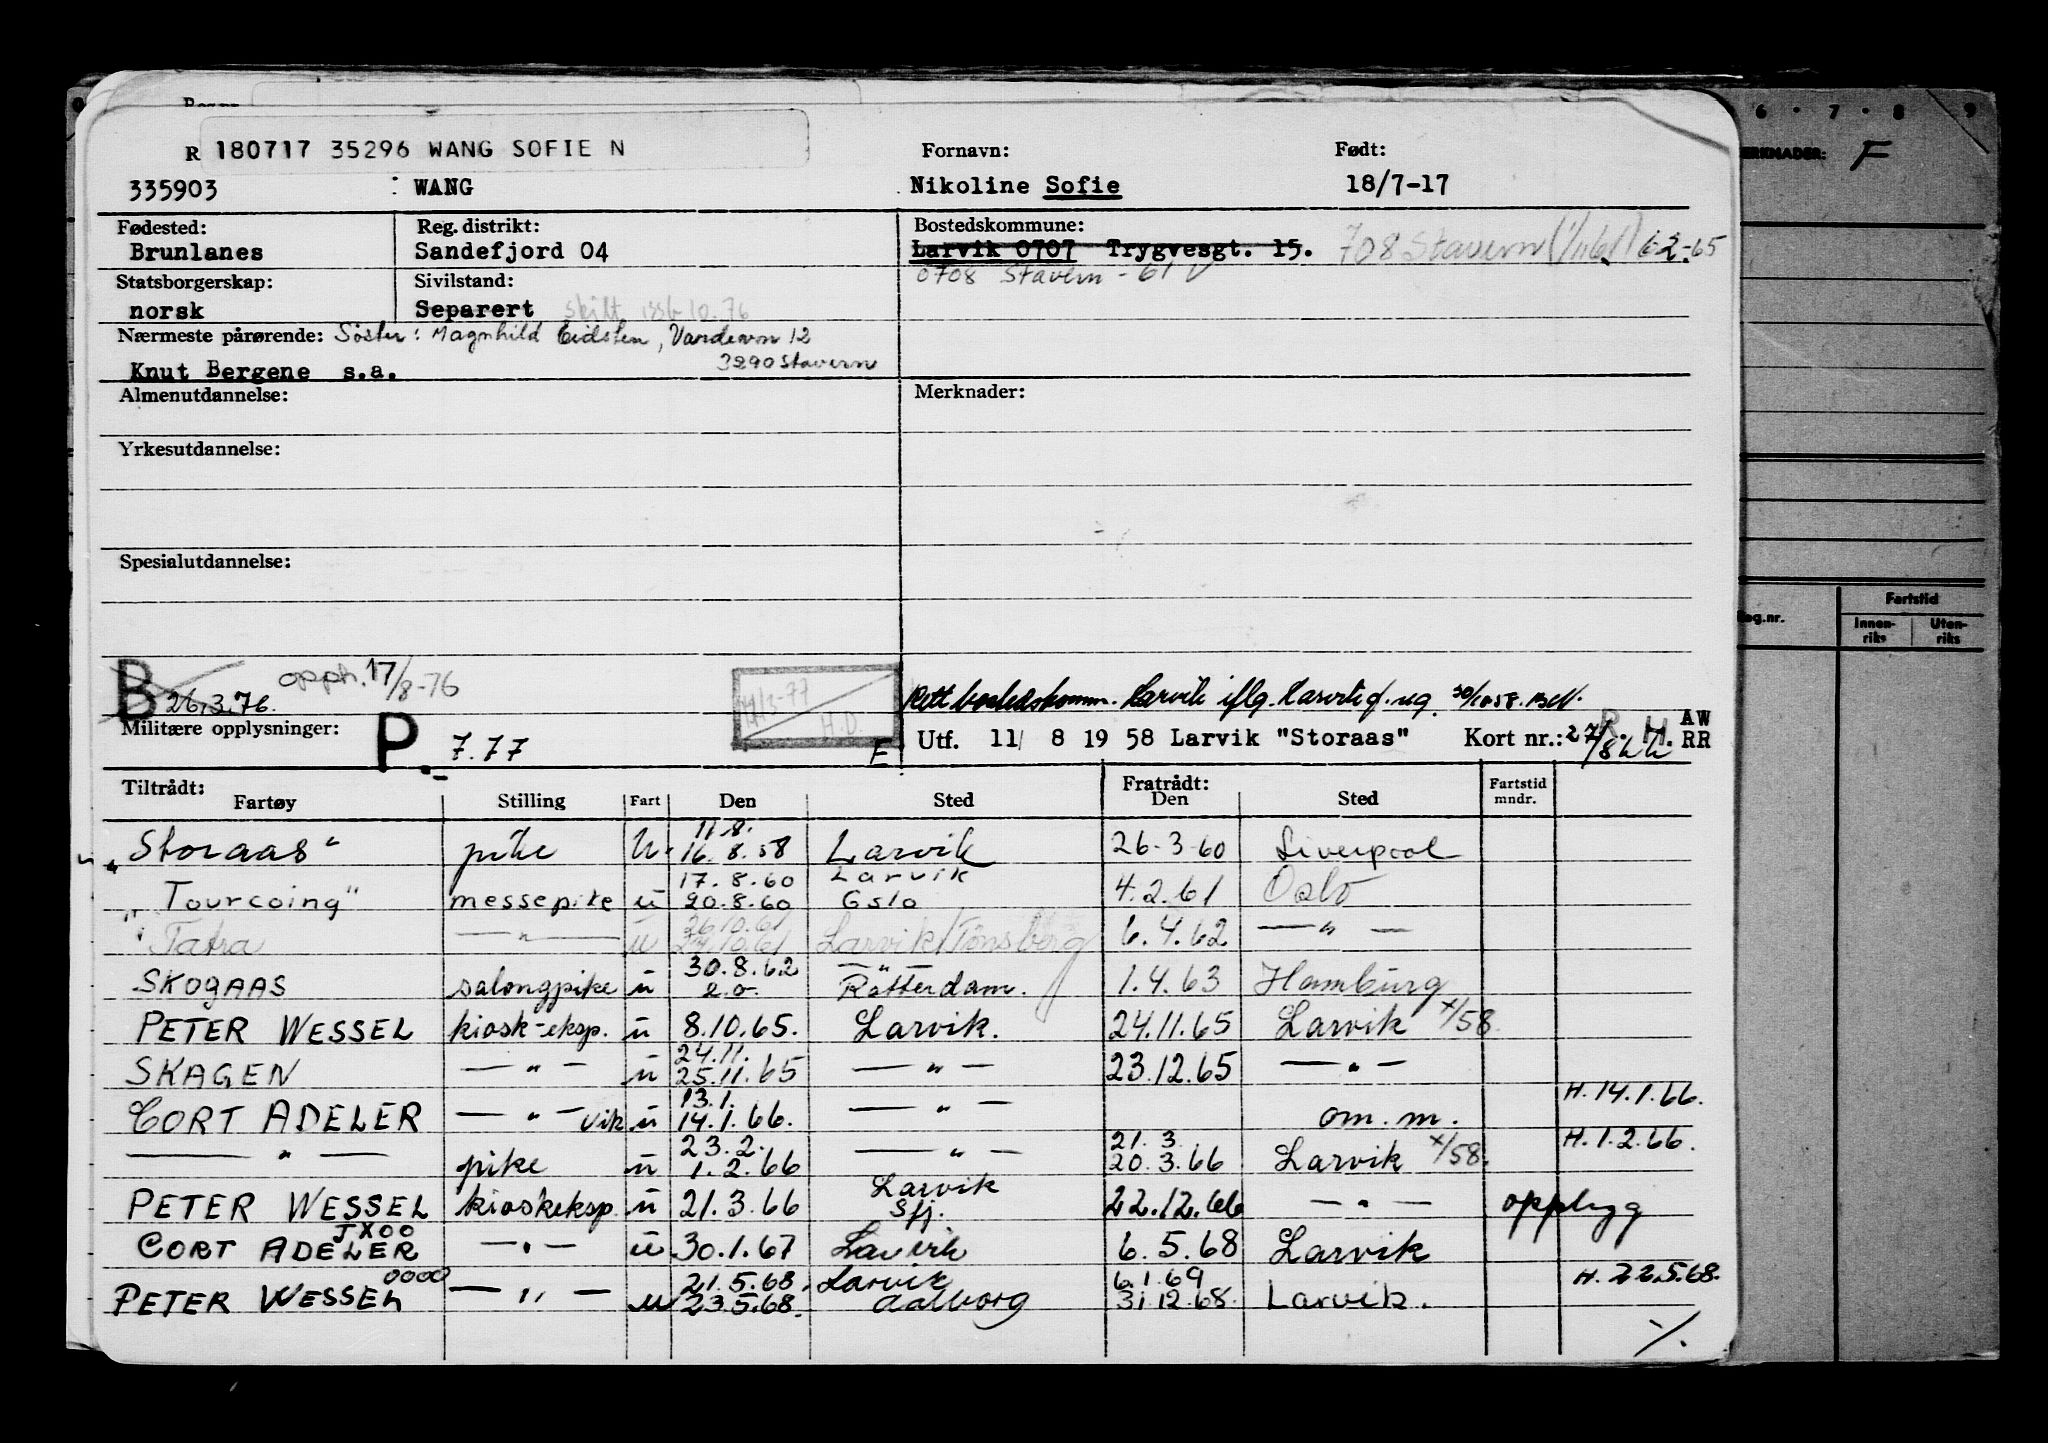 R 180717 35296 WANG SOFIE N Fornavn: Født:
335903 WANG Nikoline Sofie 18/7-17
Fødested: Reg. distrikt: Bostedskommune:
Brunlanes Sandefjord 04 Larvik 0707 Trygvesgt. 15. 708 Stavern (1/11 61) 6-2-65
0708 Stavern - 61 V
Statsborgerskap: Sivilstand:
norsk Separert skilt 10.76
Nærmeste pårørende: Søster: Magnhild Eidsten, Vardevn 12
Knut Bergene s.a. 3290 Stavern
Almenutdannelse: Merknader:
Yrkesutdannelse:
Spesialutdannelse:
B 26.3.76. opph. 17/8-76 H.D.
Rett bostedskomm. Larvik iflg. Larvik
Militære opplysninger: P. 7.77 F Utf. 11/ 8 19 58 Larvik "Storaas" Kort nr.: R. H. AW
RR
Tiltrådt: Fratrådt: Fartstid
Fartøy Stilling Fart Den Sted Den Sted mndr.
11.8.
"Storaas" pike u. 16.8.58 Larvik 26-3-60 Liverpool
17.8.60 Larvik
"Tourcoing" messepike u 20.8.60 Oslo 4.2.61 Oslo
26.10.61
"Tatra — " — u 27.10.61 Larvik/Tønsberg 6.4.62 — " —
30.8.62 — " —
SKOGAAS salongpike u 2.9. Rotterdam. 1.4.63 Hamburg
PETER WESSEL kiosk-eksp. u 8.10.65. Larvik. 24.11.65 Larvik x/58
24.11.
SKAGEN — " — u 25.11.65 — " — 23.12.65 — " —
13.1. H. 14.1.66.
CORT ADELER — " — vik u 14.1.66. — " — om. m.
23.2. 21.3 H. 1.2.66.
— " — pike u 1.2.66 — " — 20.3.66 Larvik x/58.
Larvik
PETER WESSEL kioskeksp. u 21.3.66 Sfj. 22.12.66 — " — opphyg
JXOO
CORT ADELER — " — u 30.1.67 Larvik 6.5.68 Larvik
OOOO 21.5.68, Larvik 6.1.69 H. 22.5.68.
PETER WESSEL — " — u 23.5.68. Aalborg 31.12.68 Larvik.
%.
6 · 7 · 8 · 9
ERKNADER: F
eg.nr. Fartstid
Innen-riks Uten-riks